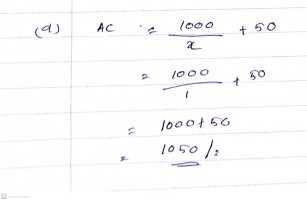 (d) AC = 1000/x + 50
= 1000/1 + 50
= 1000+50
= 1050/2